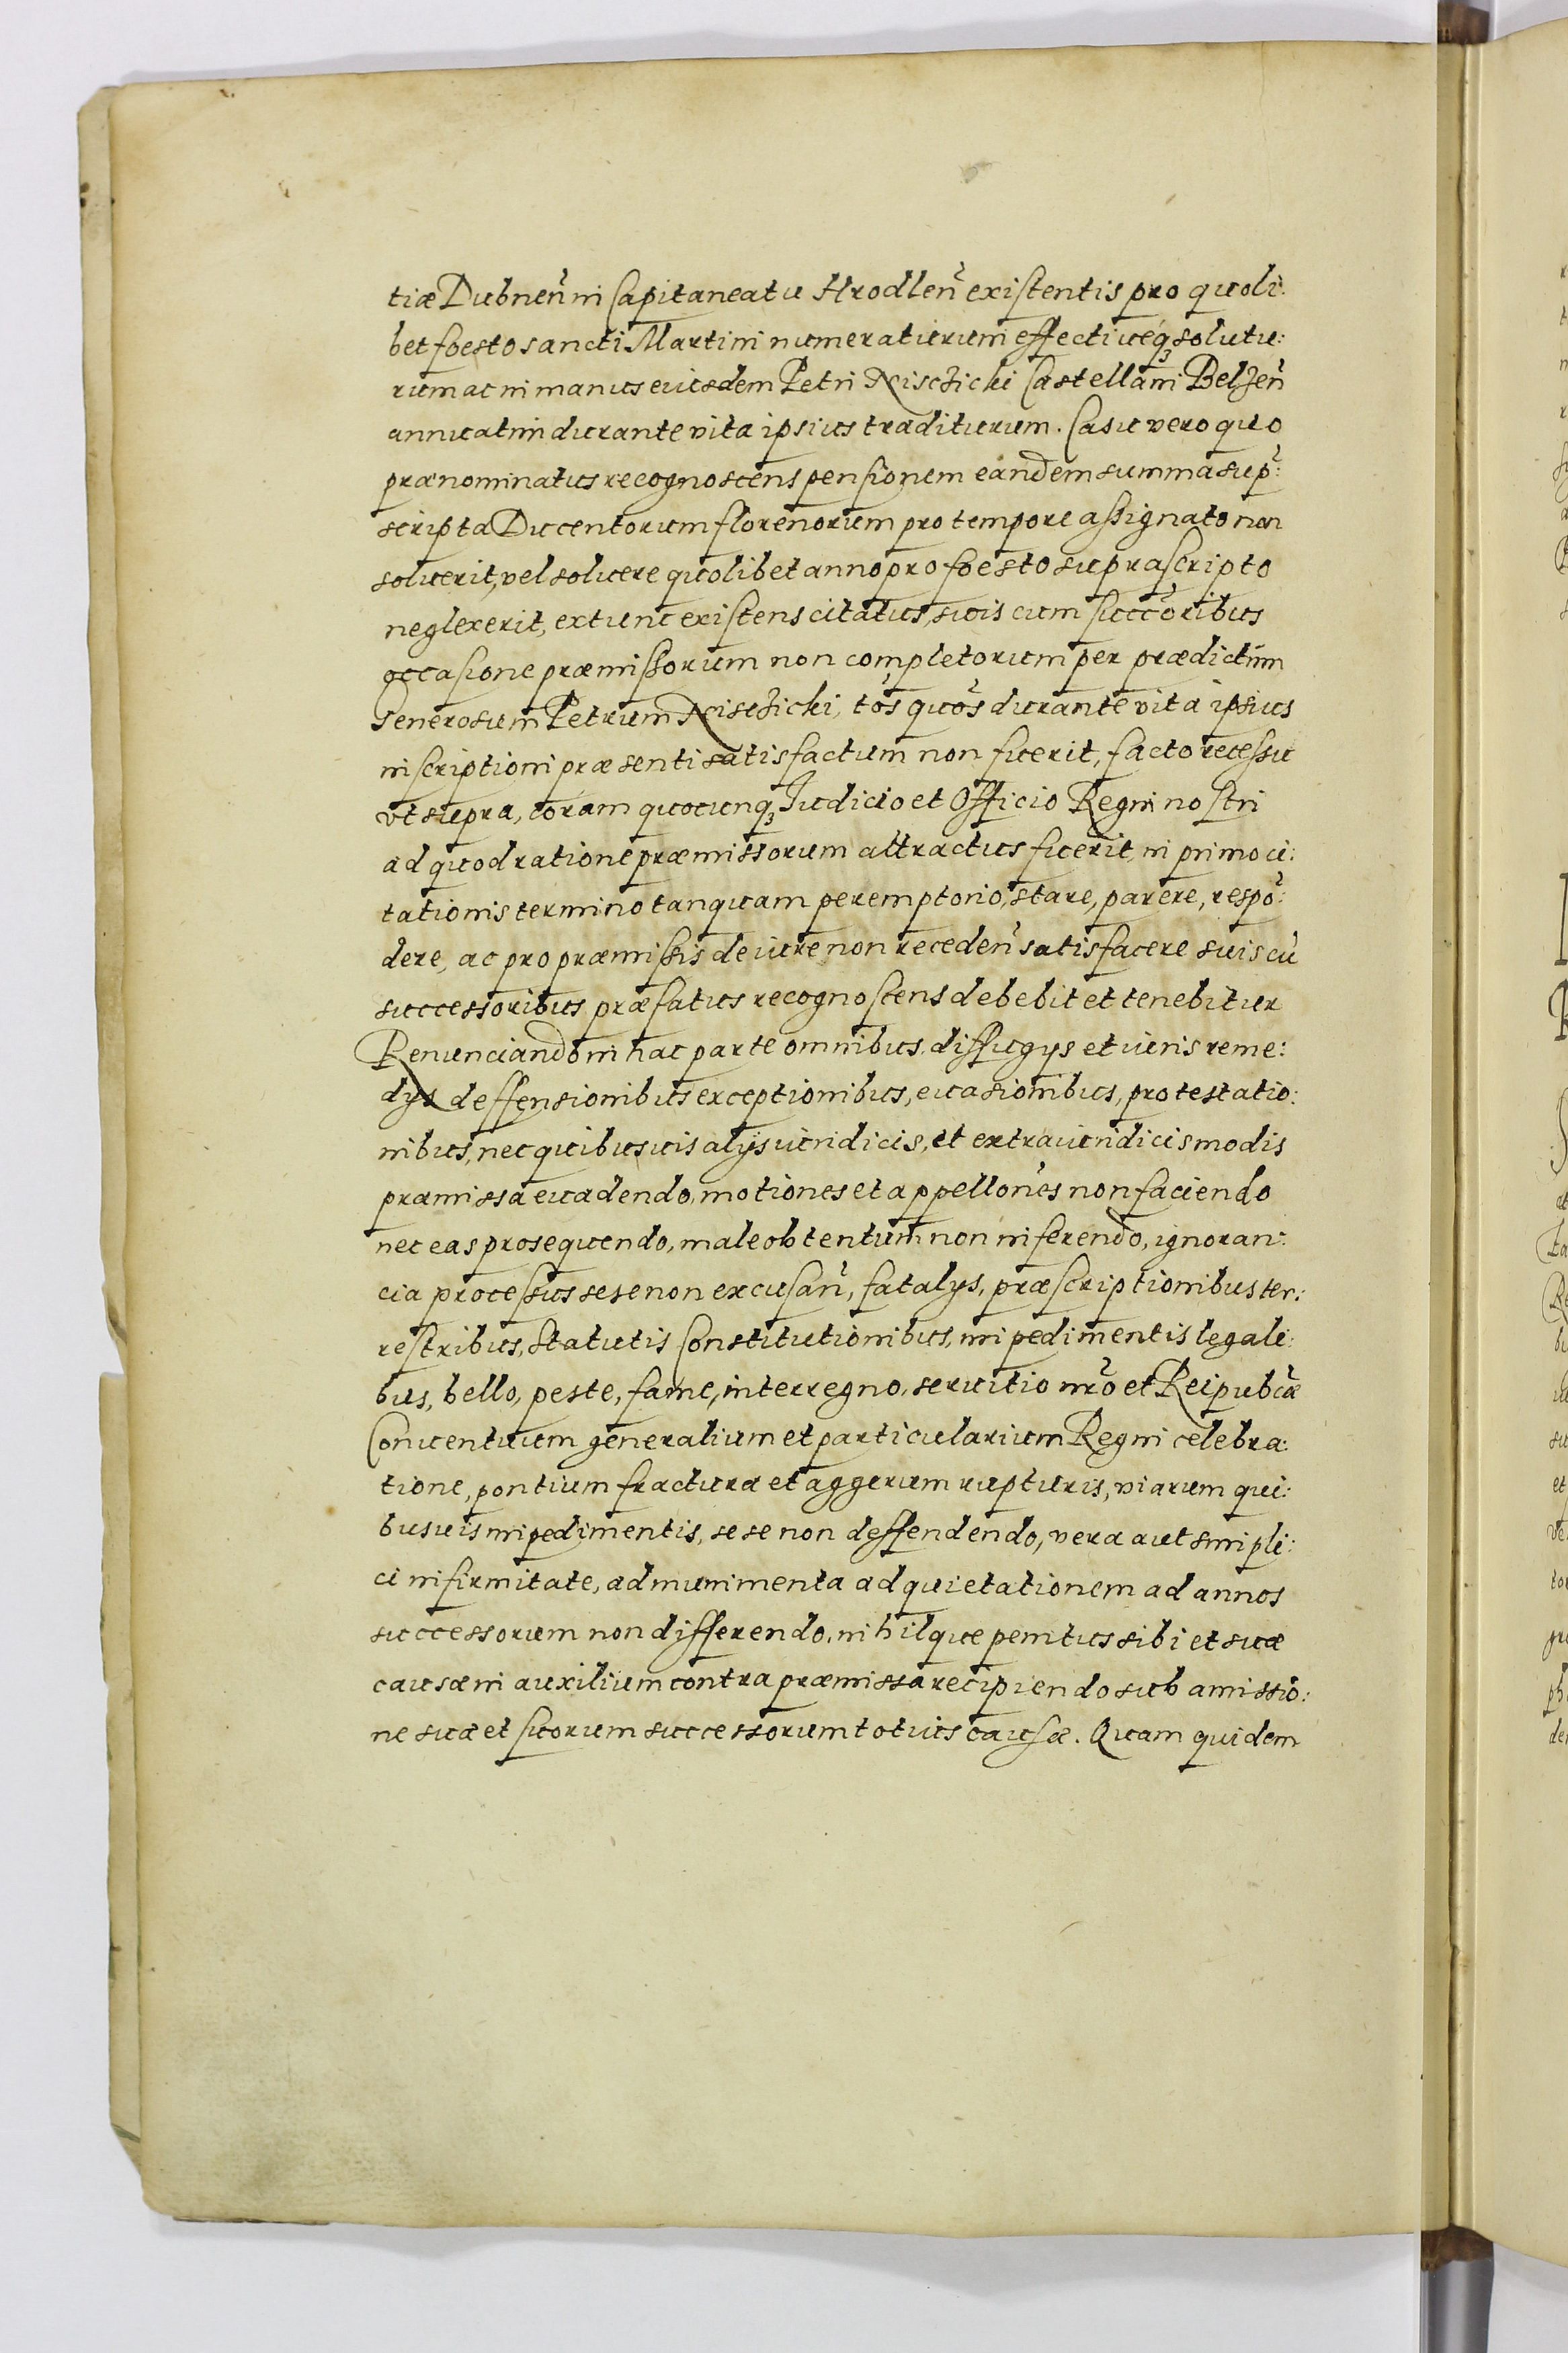 tiæ Dubnen̄ in Capitaneatu Hrodlen̄ existentis pro quoli:
bet foesto sancti Martini numeraturum effectiueq₃ solutu:
rum ac in manus eiusdem Petri Misczichi Castellani Belzen̄
annuatim durante vita ipsius traditurum. Casu vero quo
prænominatus recognoscens pensionem eandem summa sup̄:
scripta Ducentorum florenorum pro tempore assignato non
soluerit, vel soluere quolibet anno pro foesto suprascripto
neglexerit, extunc existens citatus, suis cum succ̄oribus
occasione præmissorum non completorum per prædictum
Generosum Petrum Misczichi, tōs quōs durante vita ipsius
inscriptioni præsenti satisfactum non fuerit, facto recessu
vt supra, coram quocunq₃ Iudicio et Officio Regni nostri
ad quod ratione præmissorum attractus fuerit, in primo ci:
tationis termino tanquam peremptorio, stare, parere, respō:
dere, ac pro præmissis de iure non receden̄ satisfacere suis cū
successoribus præfatus recognoscens debebit et tenebitur
Renunciando in hac parte omnibus diffugys et iuris reme:
dys deffensionibus exceptionibus, euasionibus, protestatio:
nibus, nec quibusuis alys iuridicis, et extraiuridicis modis
præmissa euadendo, motiones et appellōnes non faciendo
nec eas prosequendo, male obtentum non inferendo, ignoran:
cia processus sese non excusan̄, fatalys, præscriptionibus ter:
restribus, Statutis Constitutionibus, impedimentis legali:
bus, bello, peste, fame, interregno, seruitio nr̄o et Reipubc̄æ
Conuentuum generalium et particularium Regni celebra:
tione, pontium fractura et aggerum rupturis, viarum qui:
busuis impedimentis, sese non deffendendo, vera aut simpli:
ci infirmitate, ad munimenta ad quietationem ad annos
successorum non differendo, nihilque penitus sibi et suæ
causæ in auxilium contra præmissa recipiendo sub amissio:
ne suæ et suorum successorum totius causæ. Quam quidem